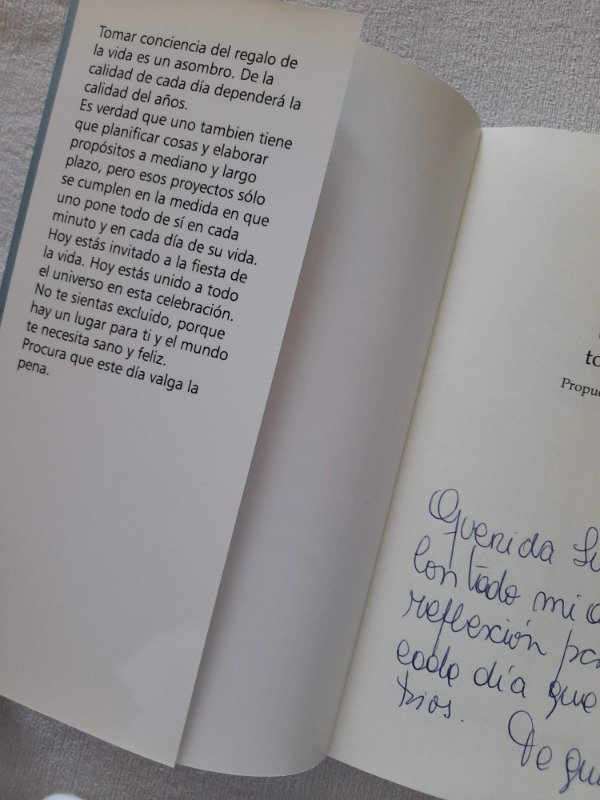 Tomar conciencia del regalo de
la vida es un asombro. De la
calidad de cada día dependerá la
calidad del años.
Es verdad que uno tambien tiene
que planificar cosas y elaborar
propósitos a mediano y largo
plazo, pero esos proyectos sólo
se cumplen en la medida en que
uno pone todo de sí en cada
minuto y en cada día de su vida.
Hoy estás invitado a la fiesta de
la vida. Hoy estás unido a todo
el universo en esta celebración.
No te sientas excluido, porque
hay un lugar para ti y el mundo
te necesita sano y feliz.
Procura que este día valga la
pena.
to
Propue
Querida Su
Con todo mi
reflexión pa
cada día que
Dios.
Te qui